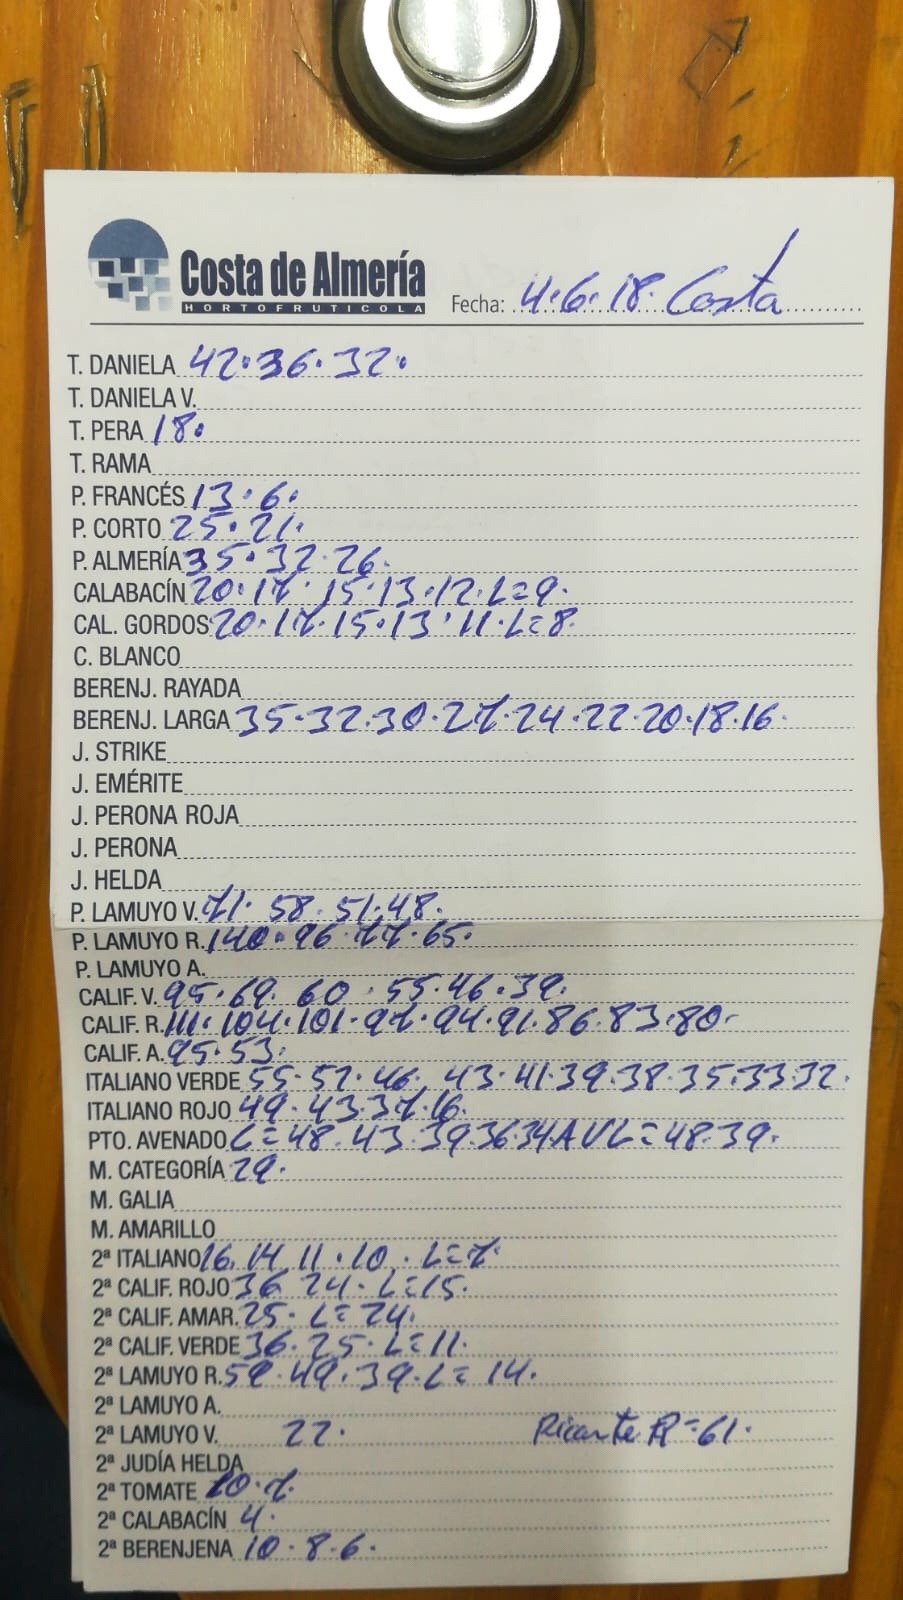 Costa de Almería
HORTOFRUTICOLA
Fecha: 4.6.18. Costa
T. DANIELA 42.36.32.
T. DANIELA V.
T. PERA 18.
T. RAMA
P. FRANCÉS 13.6.
P. CORTO 25.21.
P. ALMERÍA 35.32.26.
CALABACÍN 20.17.15.13.12.L=9.
CAL. GORDOS 20.17.15.13.11.L=8.
C. BLANCO
BERENJ. RAYADA
BERENJ. LARGA 35.32.30.27.24.22.20.18.16.
J. STRIKE
J. EMÉRITE
J. PERONA ROJA
J. PERONA
J. HELDA
P. LAMUYO V. 71.58.51.48.
P. LAMUYO R. 140.96.77.65.
P. LAMUYO A.
CALIF. V. 95.69.60.55.46.39.
CALIF. R. 111.104.101.97.94.91.86.83.80.
CALIF. A. 95.53.
ITALIANO VERDE 55.52.46.43.41.39.38.35.33.32.
ITALIANO ROJO 49.43.37.16.
PTO. AVENADO L=48.43.39.36.34 AVL=48.39.
M. CATEGORÍA 29.
M. GALIA
M. AMARILLO
2ª ITALIANO 16.14.11.10.L=7.
2ª CALIF. ROJO 36.24.L=15.
2ª CALIF. AMAR. 25.L=24.
2ª CALIF. VERDE 36.25.L=11.
2ª LAMUYO R. 59.49.39.L=14.
2ª LAMUYO A.
2ª LAMUYO V. 22. Picante R=61.
2ª JUDÍA HELDA
2ª TOMATE 10.7.
2ª CALABACÍN 4.
2ª BERENJENA 10.8.6.